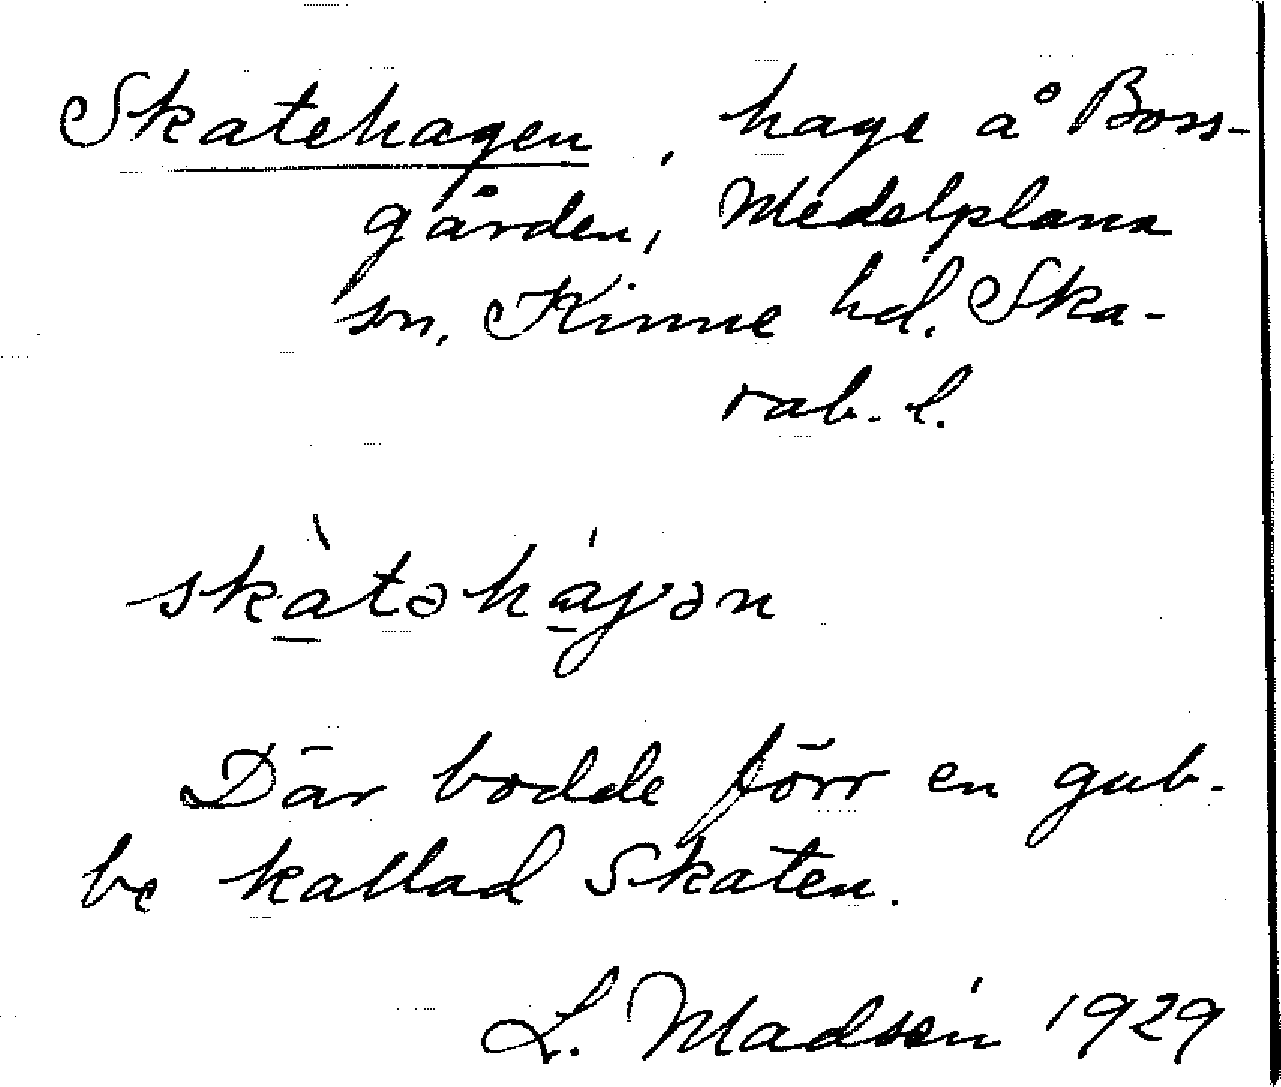 Skatehagen, hage å Boss-
gården, Medelplana
sn, Kinne hd. Ska-
rab. l.
skа̀təhа́ɣən
Där bodde förr en gub-
be kallad Skaten.
L. Madsén 1929